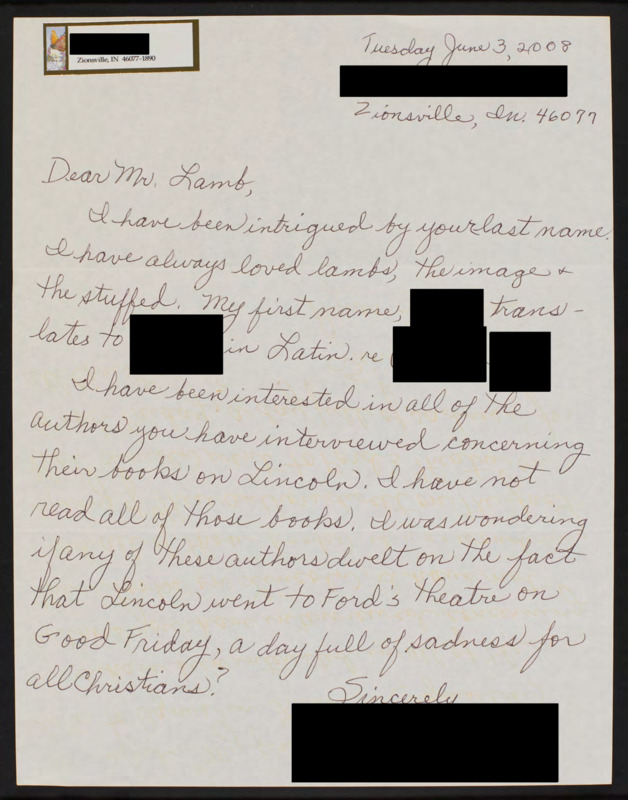 Zionsville, IN 46077-1890
Tuesday June 3, 2008
Zionsville, In. 46077
Dear Mr. Lamb,
I have been intrigued by your last name.
I have always loved lambs, the image +
the stuffed. My first name, trans-
lates to in Latin. re
I have been interested in all of the
authors you have interviewed concerning
their books on Lincoln. I have not
read all of those books. I was wondering
if any of these authors dwelt on the fact
that Lincoln went to Ford's Theatre on
Good Friday, a day full of sadness for
all Christians?
Sincerely